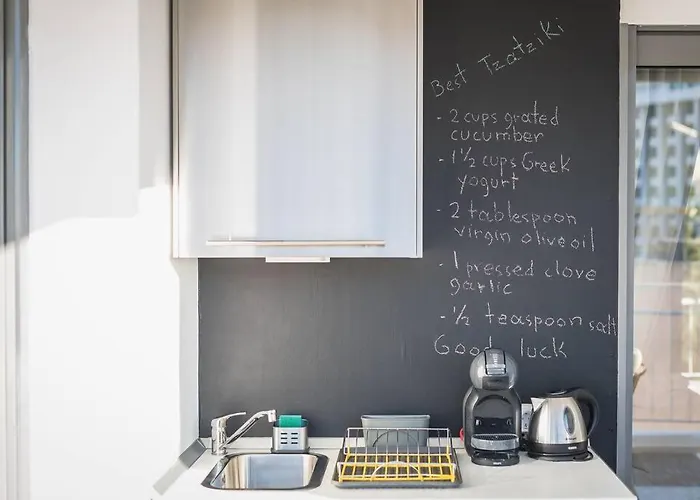 Best Tzatziki
- 2 cups grated
cucumber
- 1 1/2 cups Greek
yogurt
- 2 tablespoon
virgin olive oil
- 1 pressed clove
garlic
- 1/2 teaspoon salt
Good luck